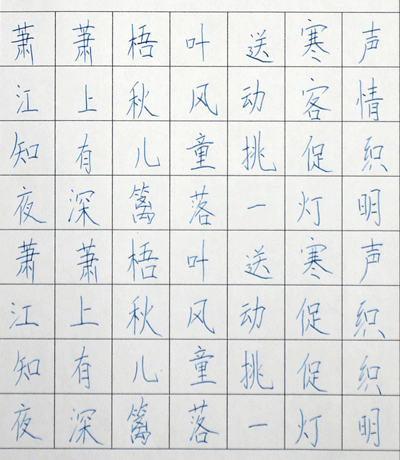 萧萧梧叶送寒声
江上秋风动客情
知有儿童挑促织
夜深篱落一灯明
萧萧梧叶送寒声
江上秋风动促织
知有儿童挑促织
夜深篱落一灯明